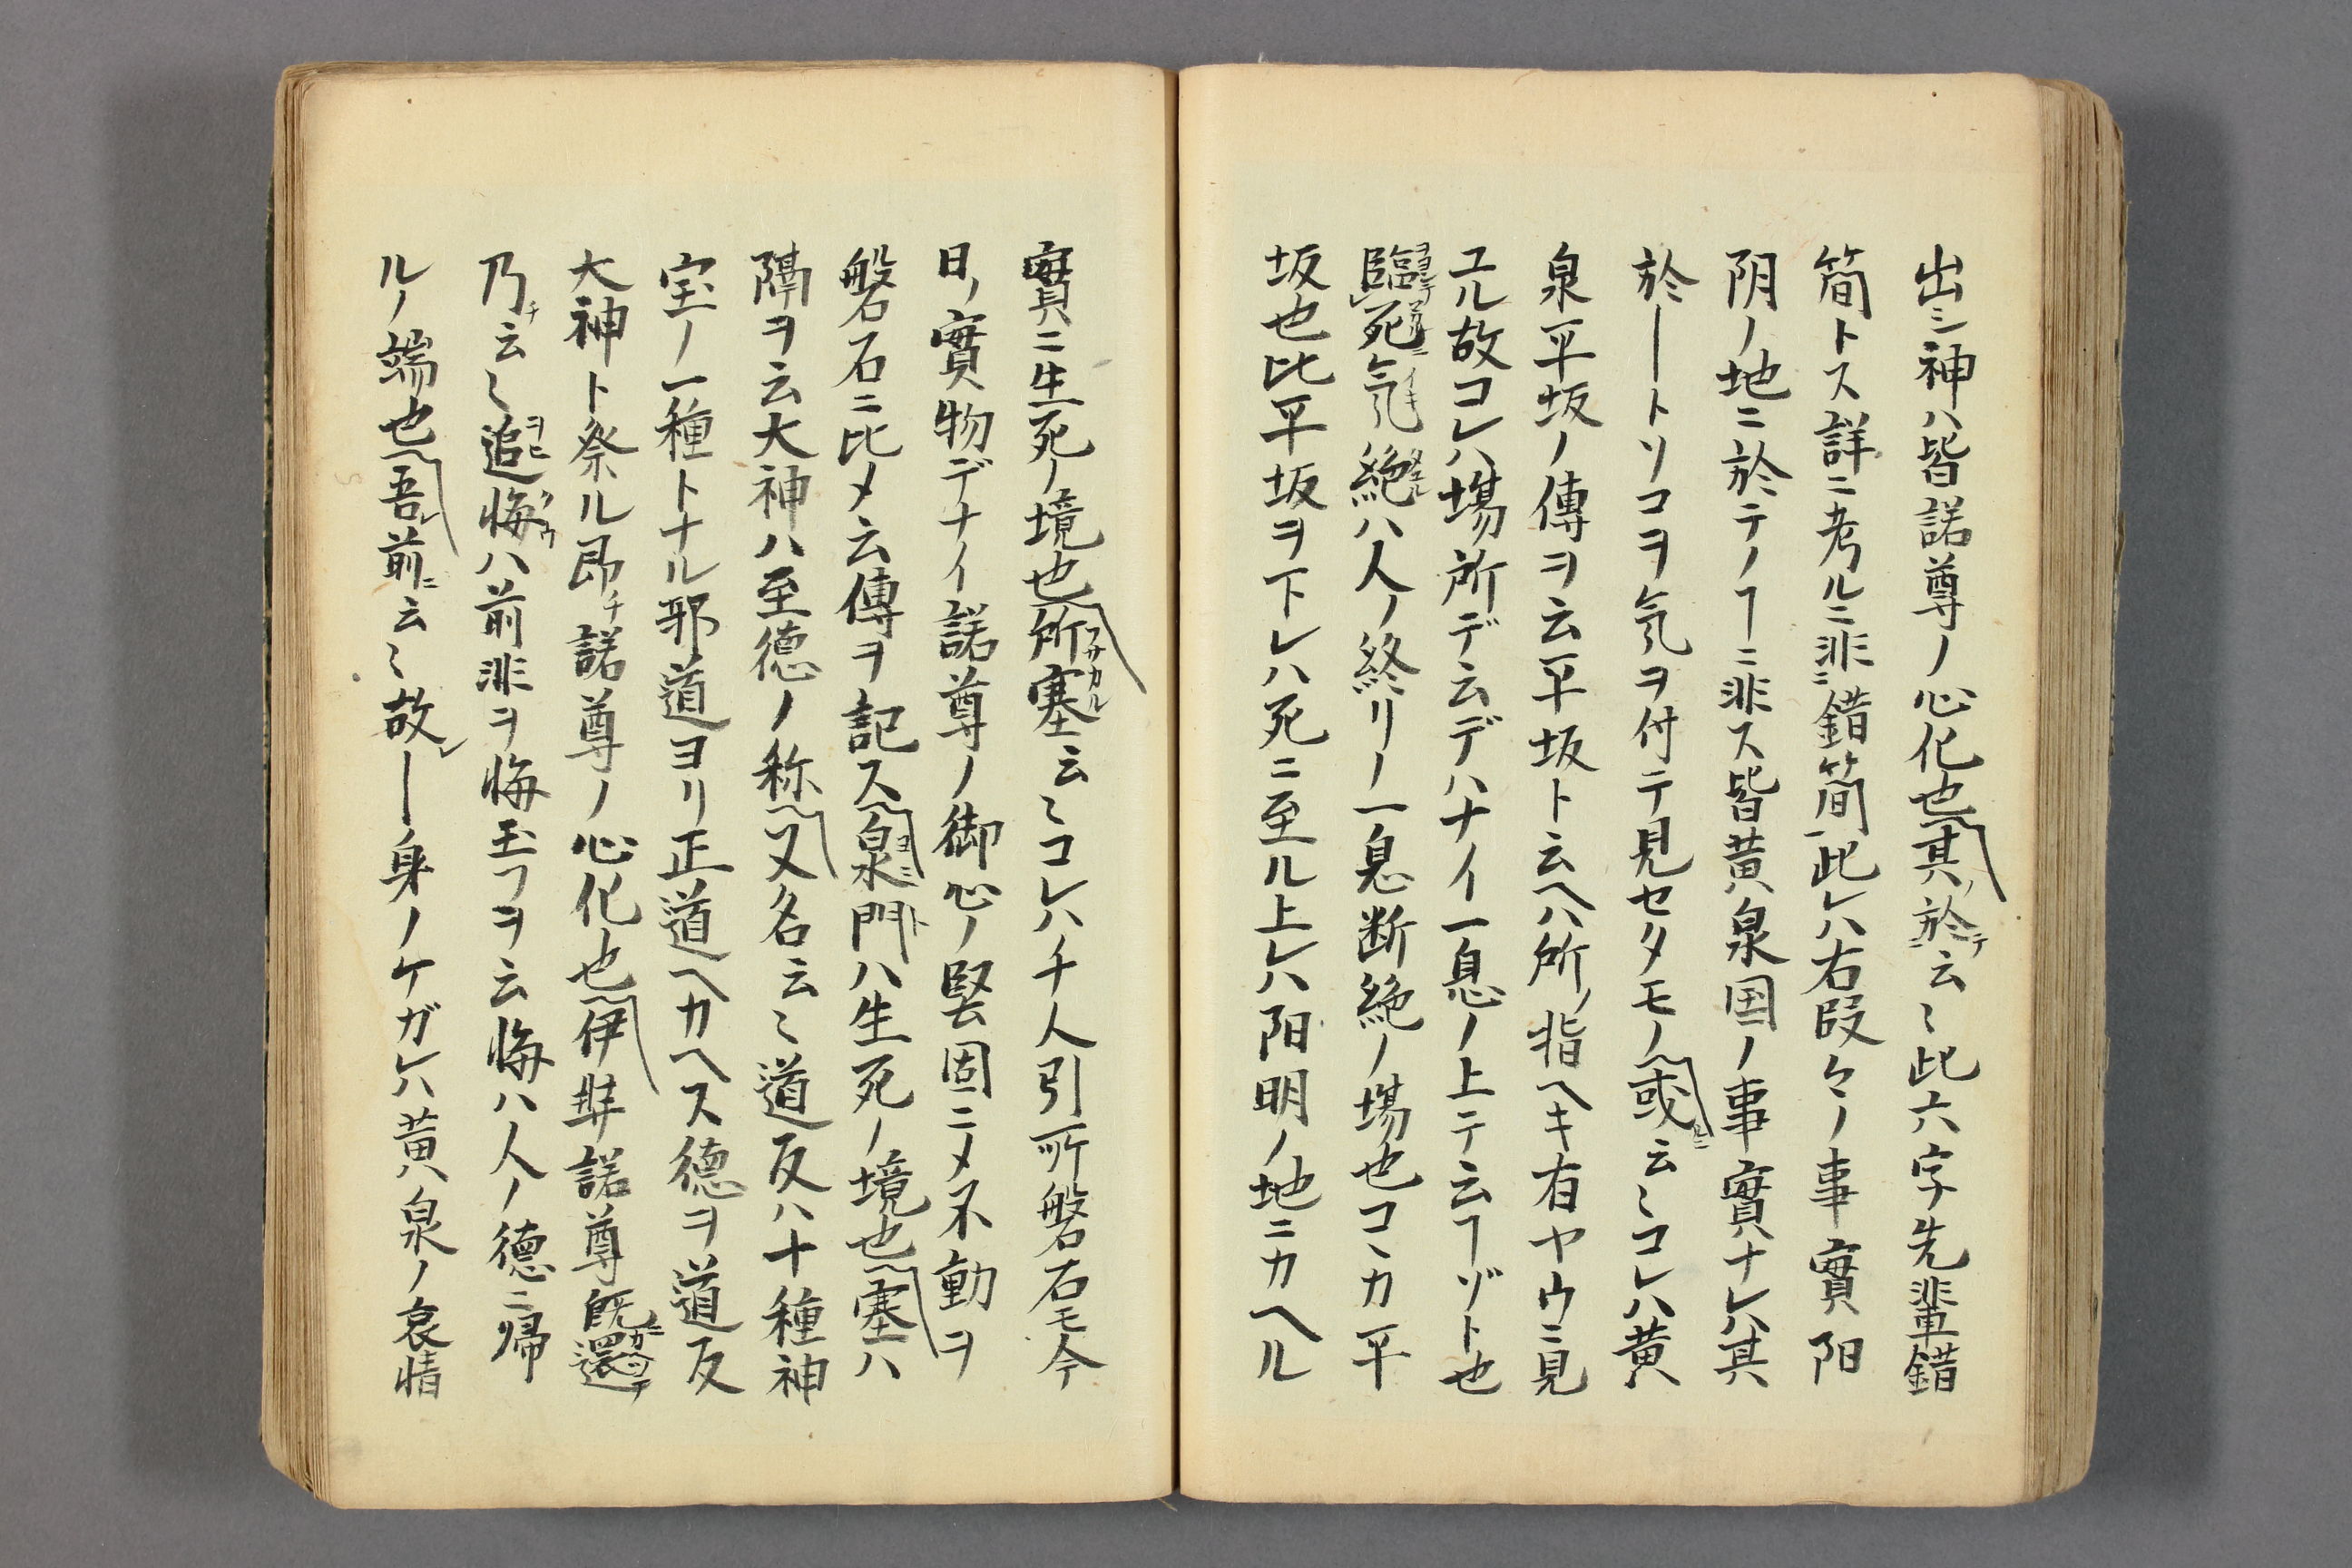 出シ神ハ皆諾尊ノ心化也其ノ於テ云〻此六字先輩錯
簡トス詳ニ考ルニ非錯簡此レハ右段々ノ事實陽
阴ノ地ニ於テノヿニ非ス皆黄泉国ノ事實ナレハ其
於―トソコヲ気ヲ付テ見セタモノ或云〻コレハ黄
泉平坂ノ傳ヲ云平坂ト云ヘハ所ノ指ヘキ有ヤウニ見
ユル故コレハ場所デ云デハナイ一息ノ上テ云ヿゾト也
臨死気絶ハ人ノ終リノ一息断絶ノ場也コヽカ平
坂也比平坂ヲ下レハ死ニ至ル上レハ阳明ノ地ニカヘル
實ニ生死ノ境也所塞云〻コレハ千人引所磐石モ今
日ノ實物デナイ諾尊ノ御心ノ堅固ニメ不動ヲ
磐石ニ比メ云傳ヲ記ス泉門ハ生死ノ境也塞ハ
隔ヲ云大神ハ至德ノ称又名云〻道反ハ十種神
宝ノ一種トナル邪道ヨリ正道ヘカヘス德ヲ道反
大神ト祭ル即チ諾尊ノ心化也伊弉諾尊既還
乃チ云〻追悔ハ前非ヲ悔玉フヲ云悔ハ人ノ德ニ帰
ルノ端也吾前ニ云〻故―身ノケガレハ黄泉ノ哀情